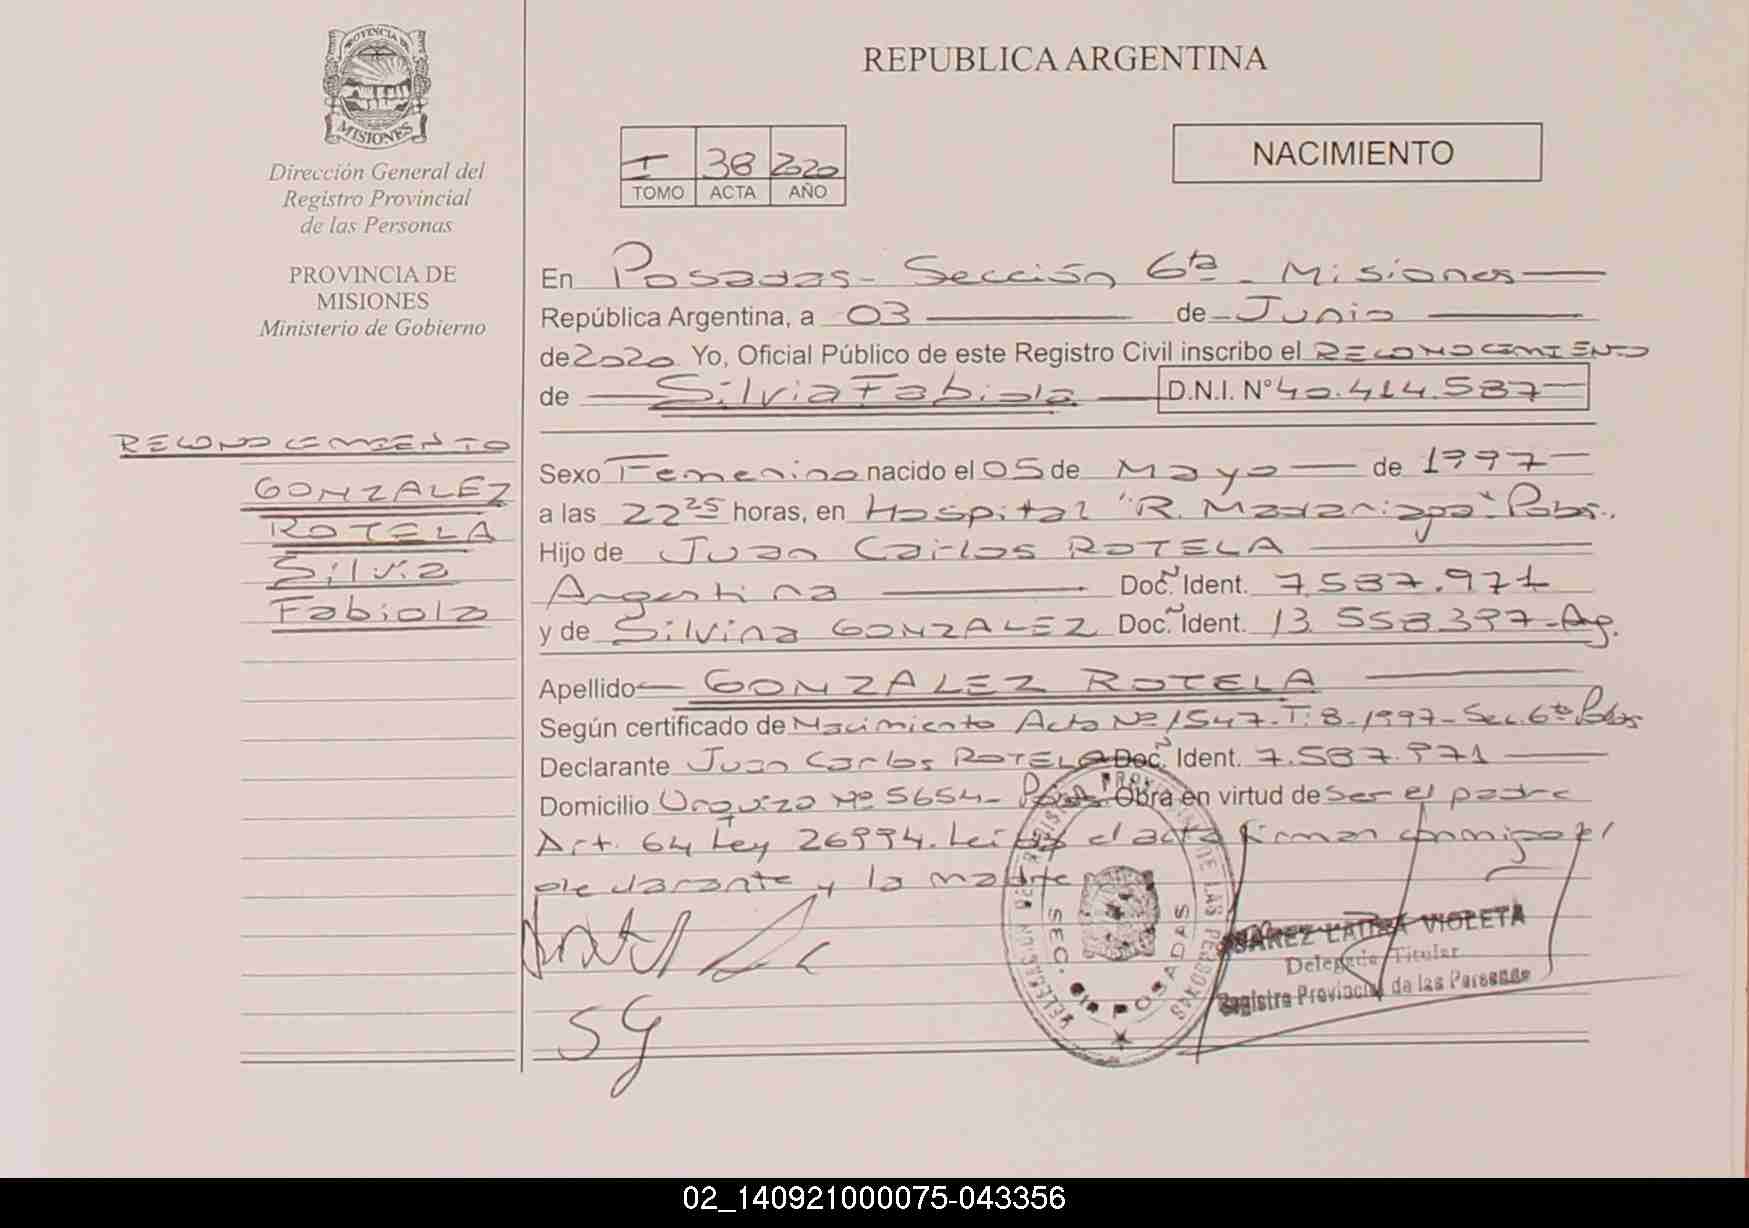 PROVINCIA DE
MISIONES
Dirección General del
Registro Provincial
de las Personas
PROVINCIA DE
MISIONES
Ministerio de Gobierno
RECONOCIMIENTO
GONZALEZ
ROTELA
Silvia
Fabiola
REPUBLICA ARGENTINA
I 38 2020
TOMO ACTA AÑO
NACIMIENTO
En Posadas - Sección 6ta - Misiones
República Argentina, a 03 de Junio
de 2020 Yo, Oficial Público de este Registro Civil inscribo el RECONOCIMIENTO
de Silvia Fabiola D.N.I. N° 40.414.587
Sexo Femenino nacido el 05 de Mayo de 1997
a las 22 25 horas, en Hospital "R. Madariaga" Pdas.
Hijo de Juan Carlos ROTELA
Argentina Doc. Ident. 7.587.971
y de Silvina GONZALEZ Doc. Ident. 13.558.397 - Arg.
Apellido GONZALEZ ROTELA
Según certificado de Nacimiento Acta Nº 1547 - T: 8 - 1997 - Sec. 6ta Pdas
Declarante Juan Carlos ROTELA Doc. Ident. 7.587.971
Domicilio Urquiza Nº 5654 - Pdas Obra en virtud de ser el padre
Art. 64 Ley 26994. Leída el acta firman conmigo el
declarante y la madre
SG
DELEGACION DEL REGISTRO PROVINCIAL DE LAS PERSONAS
SEC. 6ta POSADAS
SUAREZ LAURA VIOLETA
Delegada Titular
Registro Provincial de las Personas
02_140921000075-043356